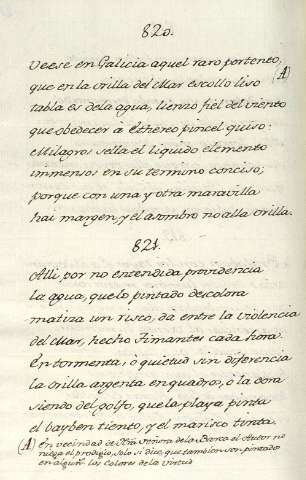 820.
Veese en Galicia aquel raro portento,
(A)
que en la orilla del Mar escollo liso
tabla es de la agua, lienzo fiel del viento
que obedecer à Ethereo pincel quiso:
Milagros sella el liquido elemento
immensos en su termino conciso;
porque con una y otra maravilla
hai margen, y el asombro no alla orilla.
821.
Alli, por no entendida providencia
la agua, que lo pintado descolora
matiza un risco, dà entre la violencia
del Mar, hecho Timantes cada hora.
En tormenta, ò quietud sin diferencia
la orilla argenta en quadros, ò la dora
siendo del golfo, que la playa pinta
el bayben tiento, y el marisco tinta.
(A) En vecindad de Nra Señora de la Barca el Autor no
niega el prodigio, solo si dice, que tambien son pintado
en algun los Colores de la Virtud